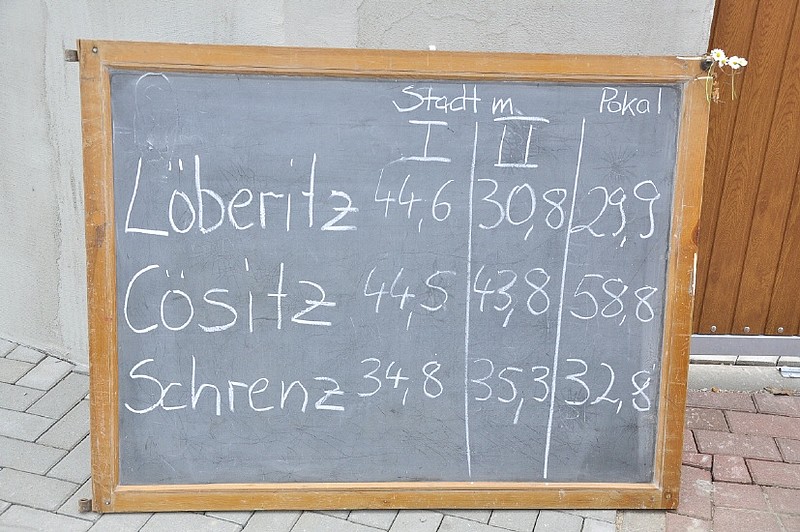 Stadt m. Pokal
I II
Löberitz 44,6 30,8 29,9
Cösitz 44,5 43,8 58,8
Schrenz 34,8 35,3 32,8